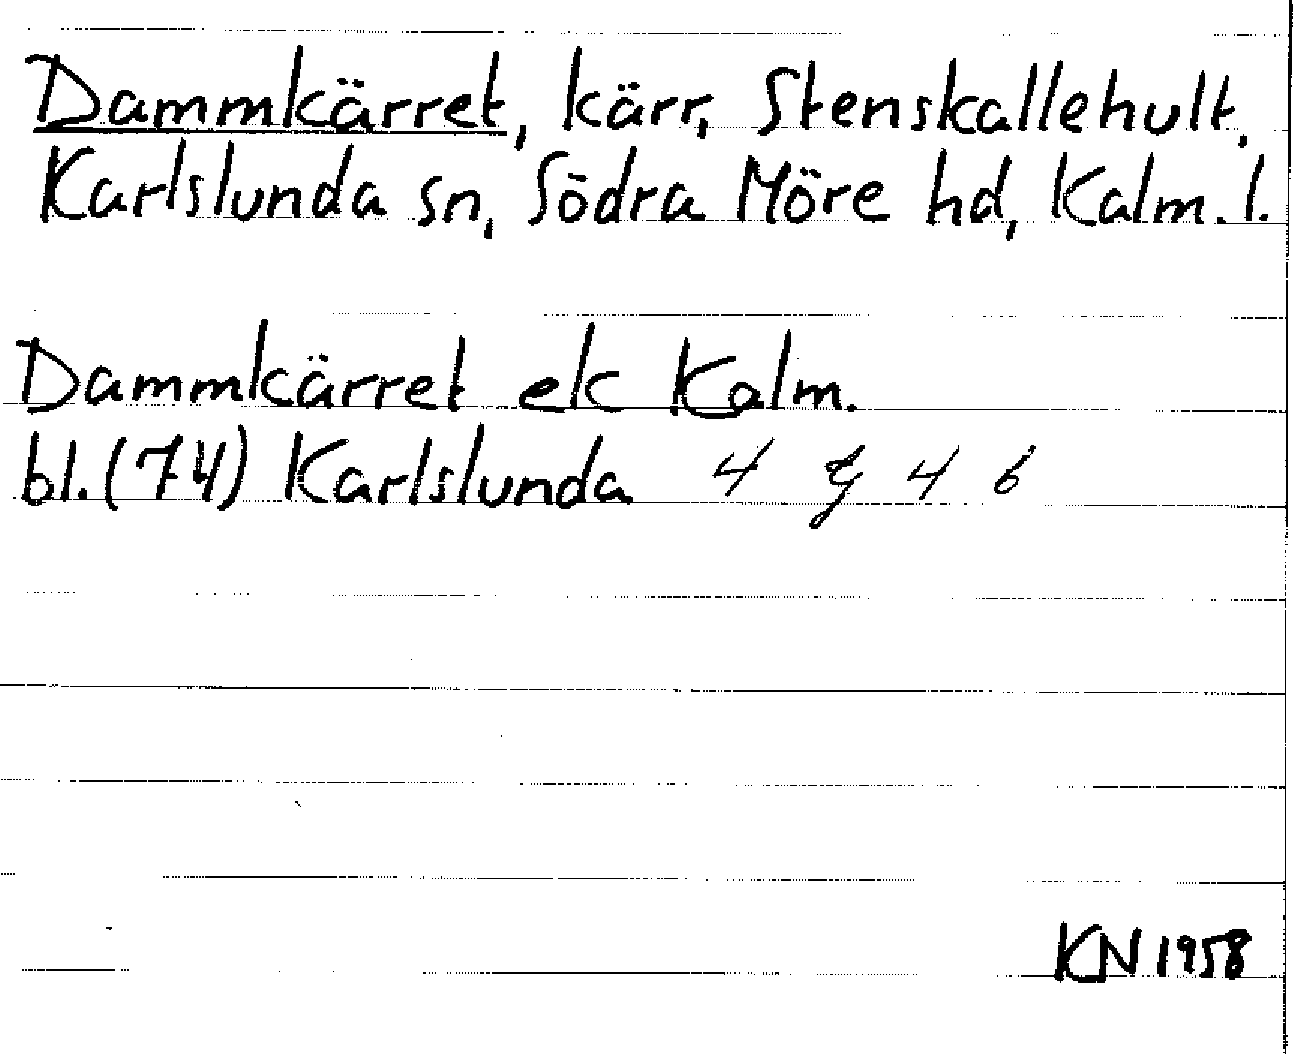 Dammkärret, kärr, Stenskallehult,
Karlslunda sn, Södra Möre hd, Kalm. l.
Dammkärret ek Kalm.
bl. (74) Karlslunda 4 g 4 b
KN 1958